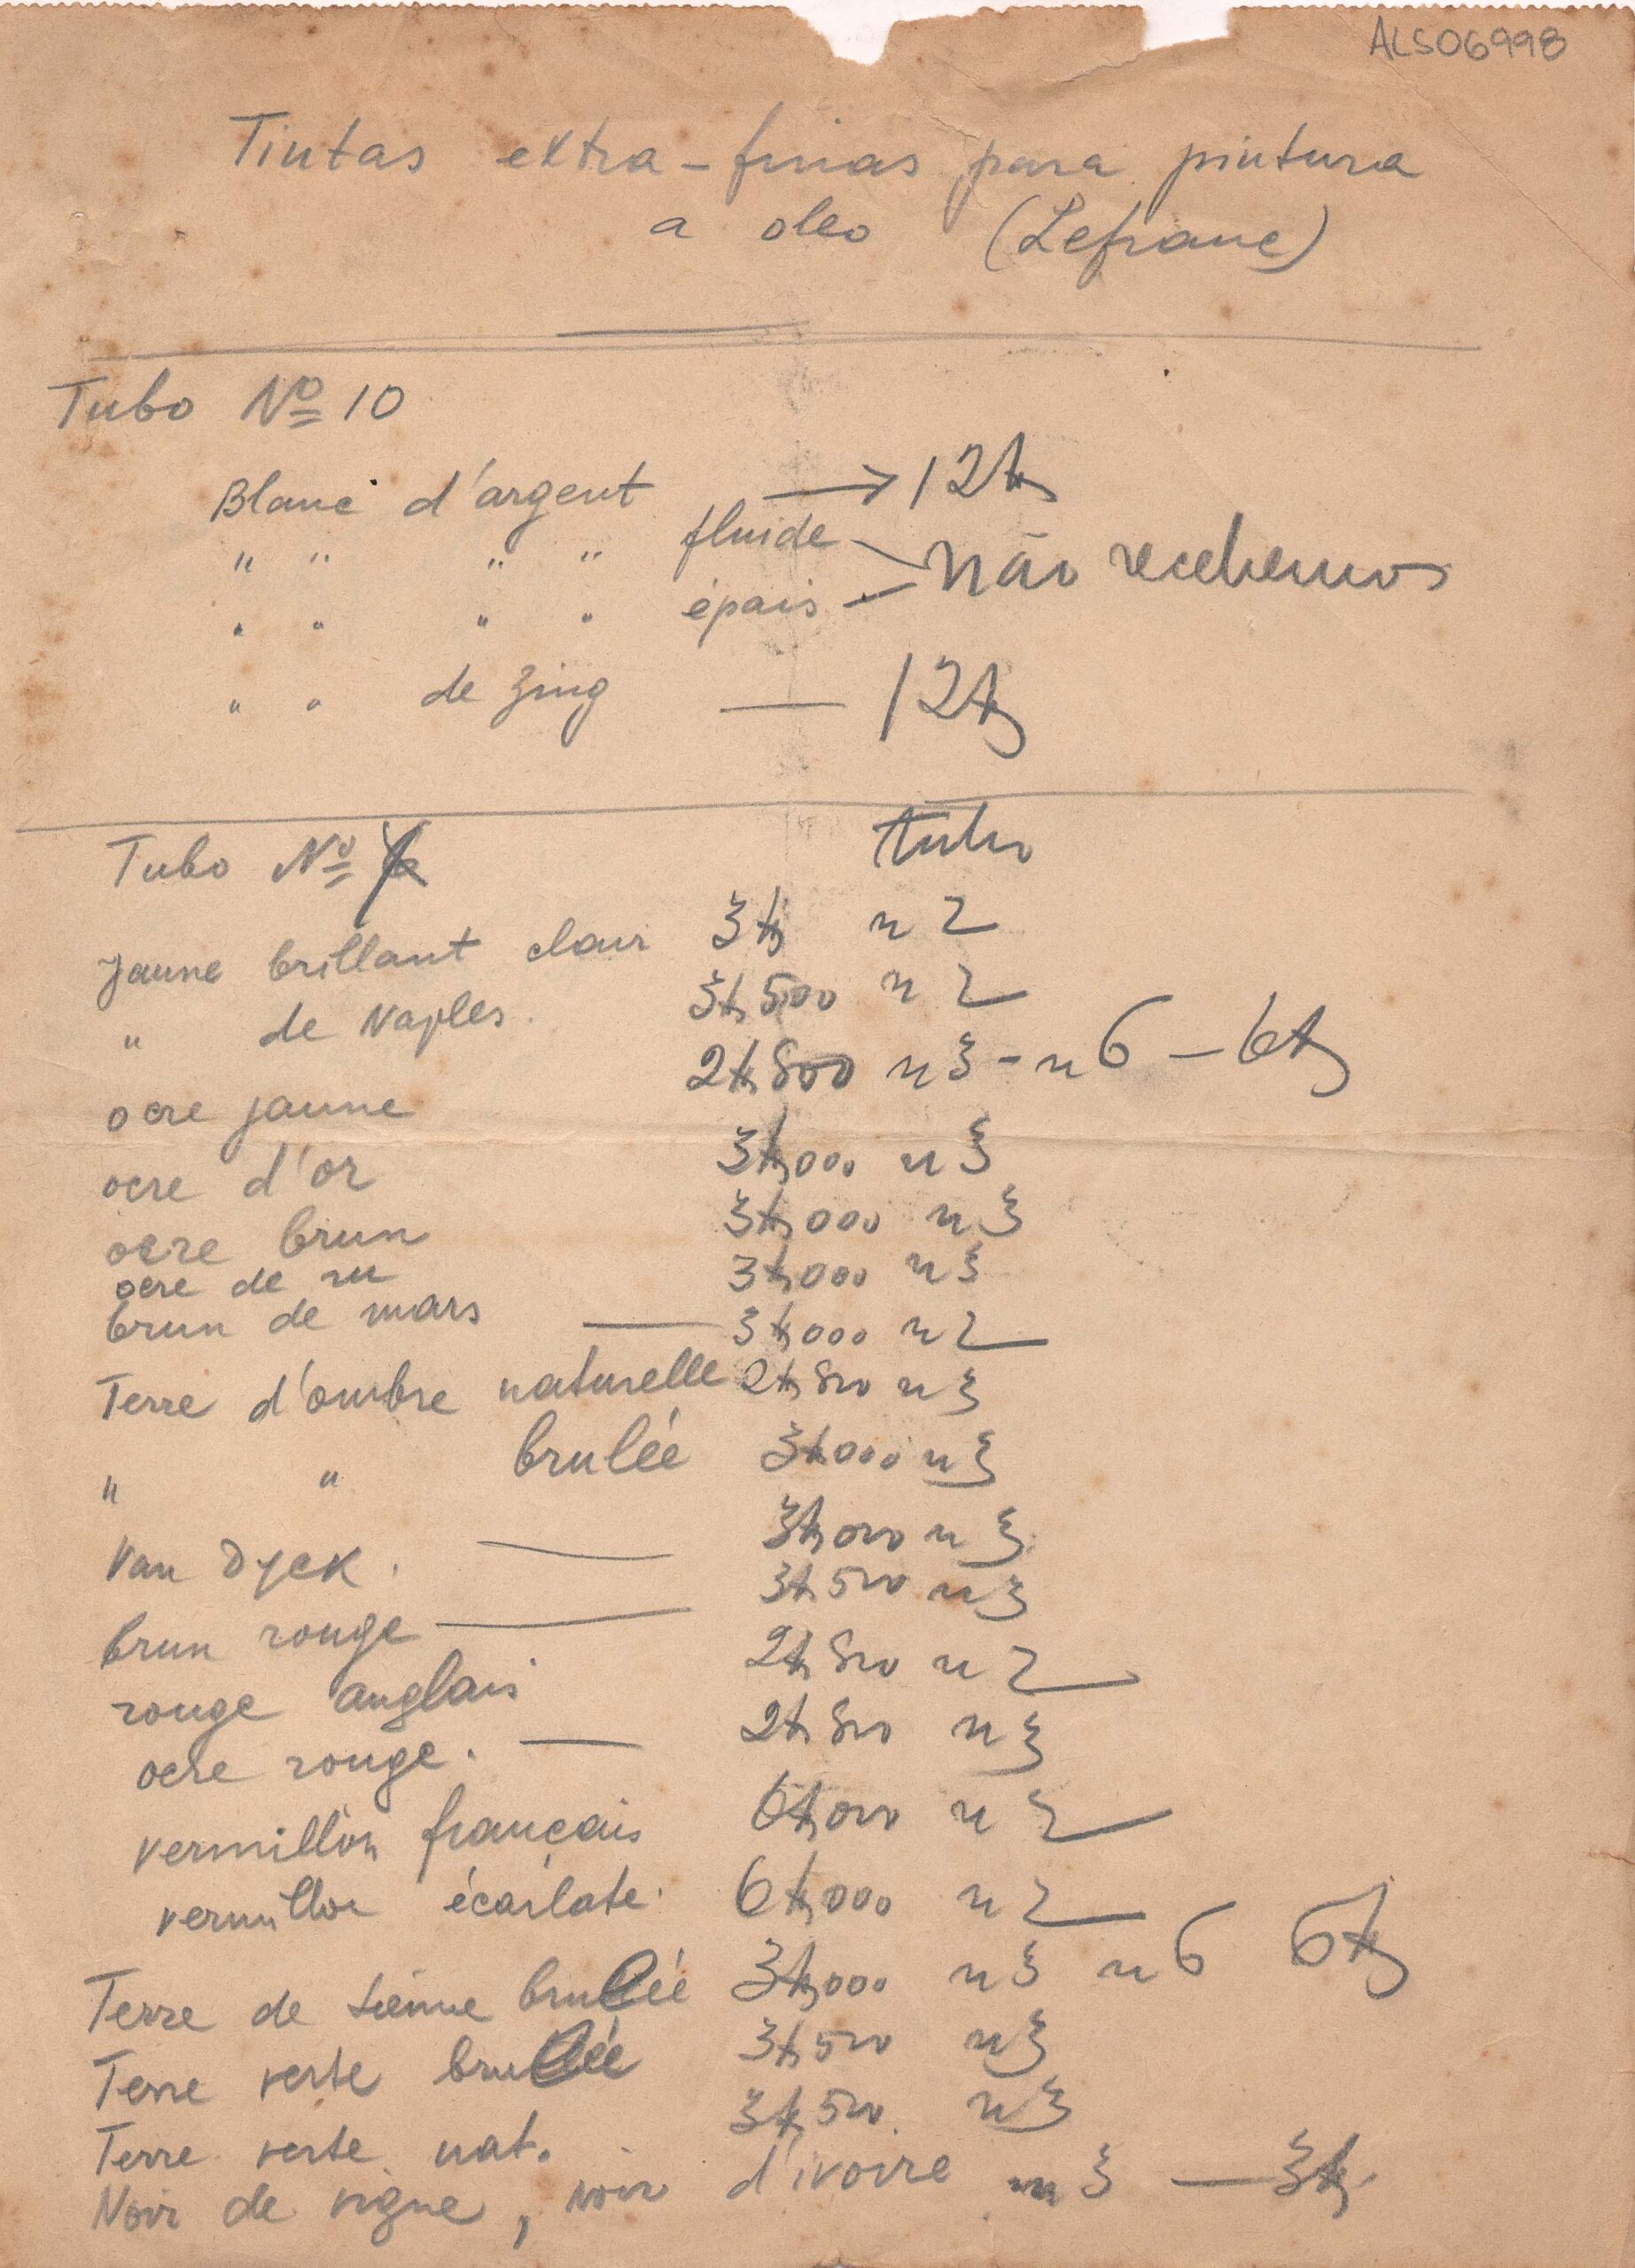 ALS06998
Tintas extra-finas para pintura
a oleo (Lefranc)
Tubo Nº 10
Blanc d'argent → 12$
" " " " fluide
não recebemos
" " " " épais
" " de zing — 12$
Tubo Nº tubo
Jaune brillant clair 3$ n 2
" de Naples. 3$500 n 2
ocre jaune 2$800 n 3 - n 6 - 6$
ocre d'or 3$000 n 3
ocre brun 3$000 n 3
ocre de ru 3$000 n 3
brun de mars — 3$000 n 2
Terre d'ombre naturelle 2$800 n 3
" " brulée 3$000 n 3
Van Dyck. — 3$000 n 3
brun rouge — 3$500 n 3
rouge anglais 2$800 n 2
ocre rouge. — 2$800 n 3
vermillon français 6$000 n 2
vermillon écarlate. 6$000 n 2
Terre de sienne brulée 3$000 n 3 n 6 6$
Terre verte brulée 3$500 n 3
Terre verte nat. 3$500 n 3
Noir de vigne, noir d'ivoire n 3 — 3$